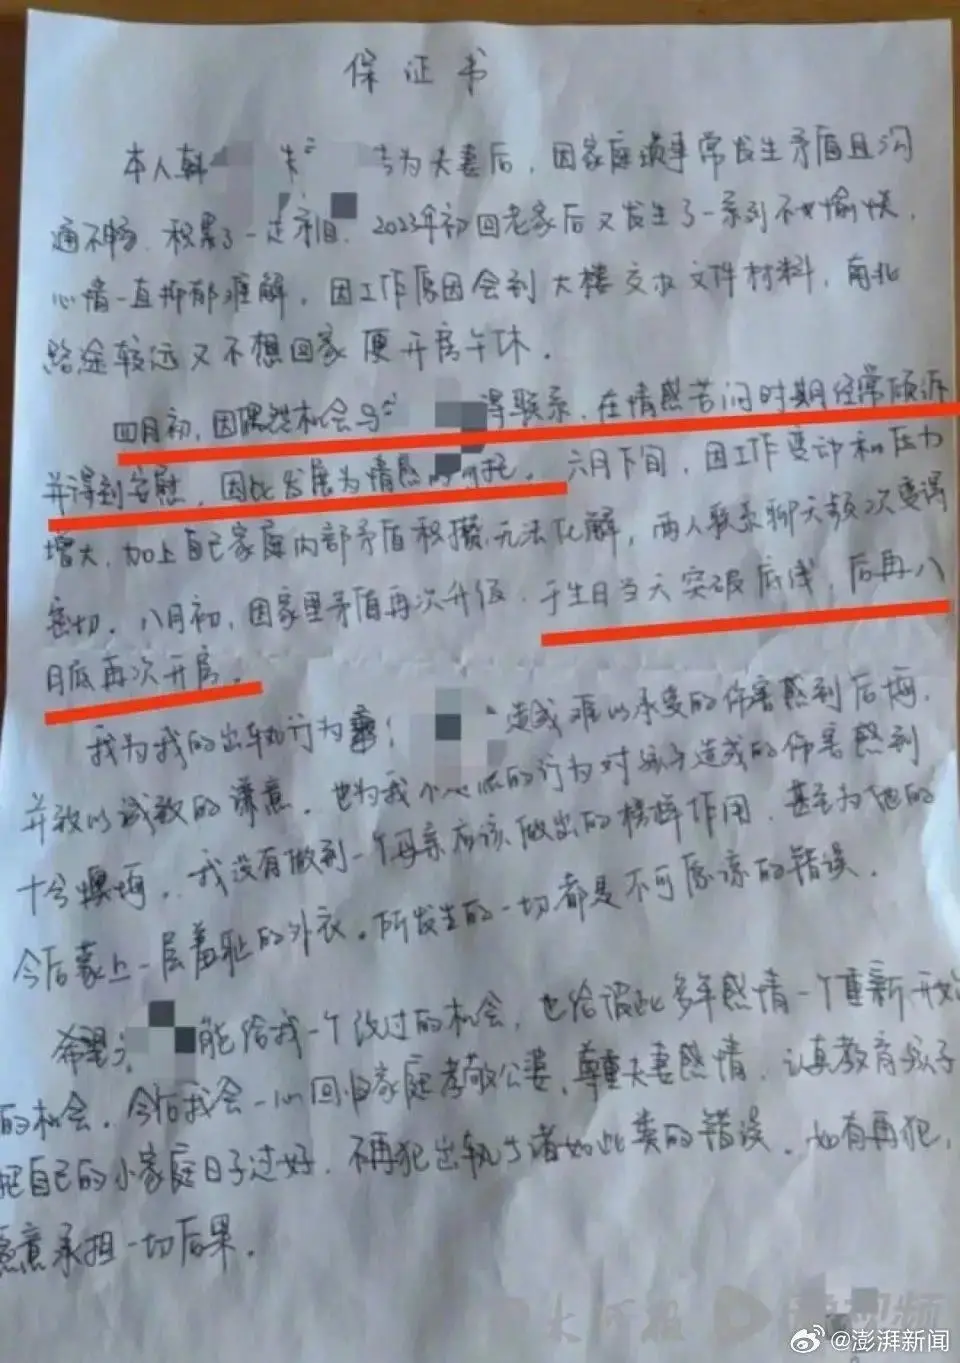 保证书
本人韩 朱 为夫妻后，因家庭琐事常发生矛盾且沟
通不畅，积累了一定矛盾，2023年初回老家后又发生了一系列不愉快，
心情一直抑郁难解，因工作原因会到大楼交取文件材料，南北
路途较远又不想回家便开房午休。
四月初，因偶然机会与 得联系，在情感苦闷时期经常倾诉
并得到安慰，因此发展为情感的 托。六月下旬，因工作变动和压力
增大，加上自己家庭内部矛盾积攒无法化解，两人联系聊天频次变得
密切。八月初，因家里矛盾再次升级，于生日当天突破底线，后再八
月底再次开房。
我为我的出轨行为 造成难以承受的伤害感到后悔，
并致以诚致的谦意，也为我 的行为对孩子造成的伤害感到
十分懊悔，我没有做到一个母亲应该做出的榜样作用，甚至为他的
今后蒙上一层羞耻的外衣。所发生的一切都是不可原谅的错误。
希望 能给我一个改过的机会，也给彼此多年感情一个重新开始
的机会，今后我会一心回归家庭孝敬公婆，尊重夫妻感情，认真教育孩子
把自己的小家庭日子过好，不再犯出轨 诸如此类的错误。如有再犯，
愿意承担一切后果。
大河报
视频
@澎湃新闻